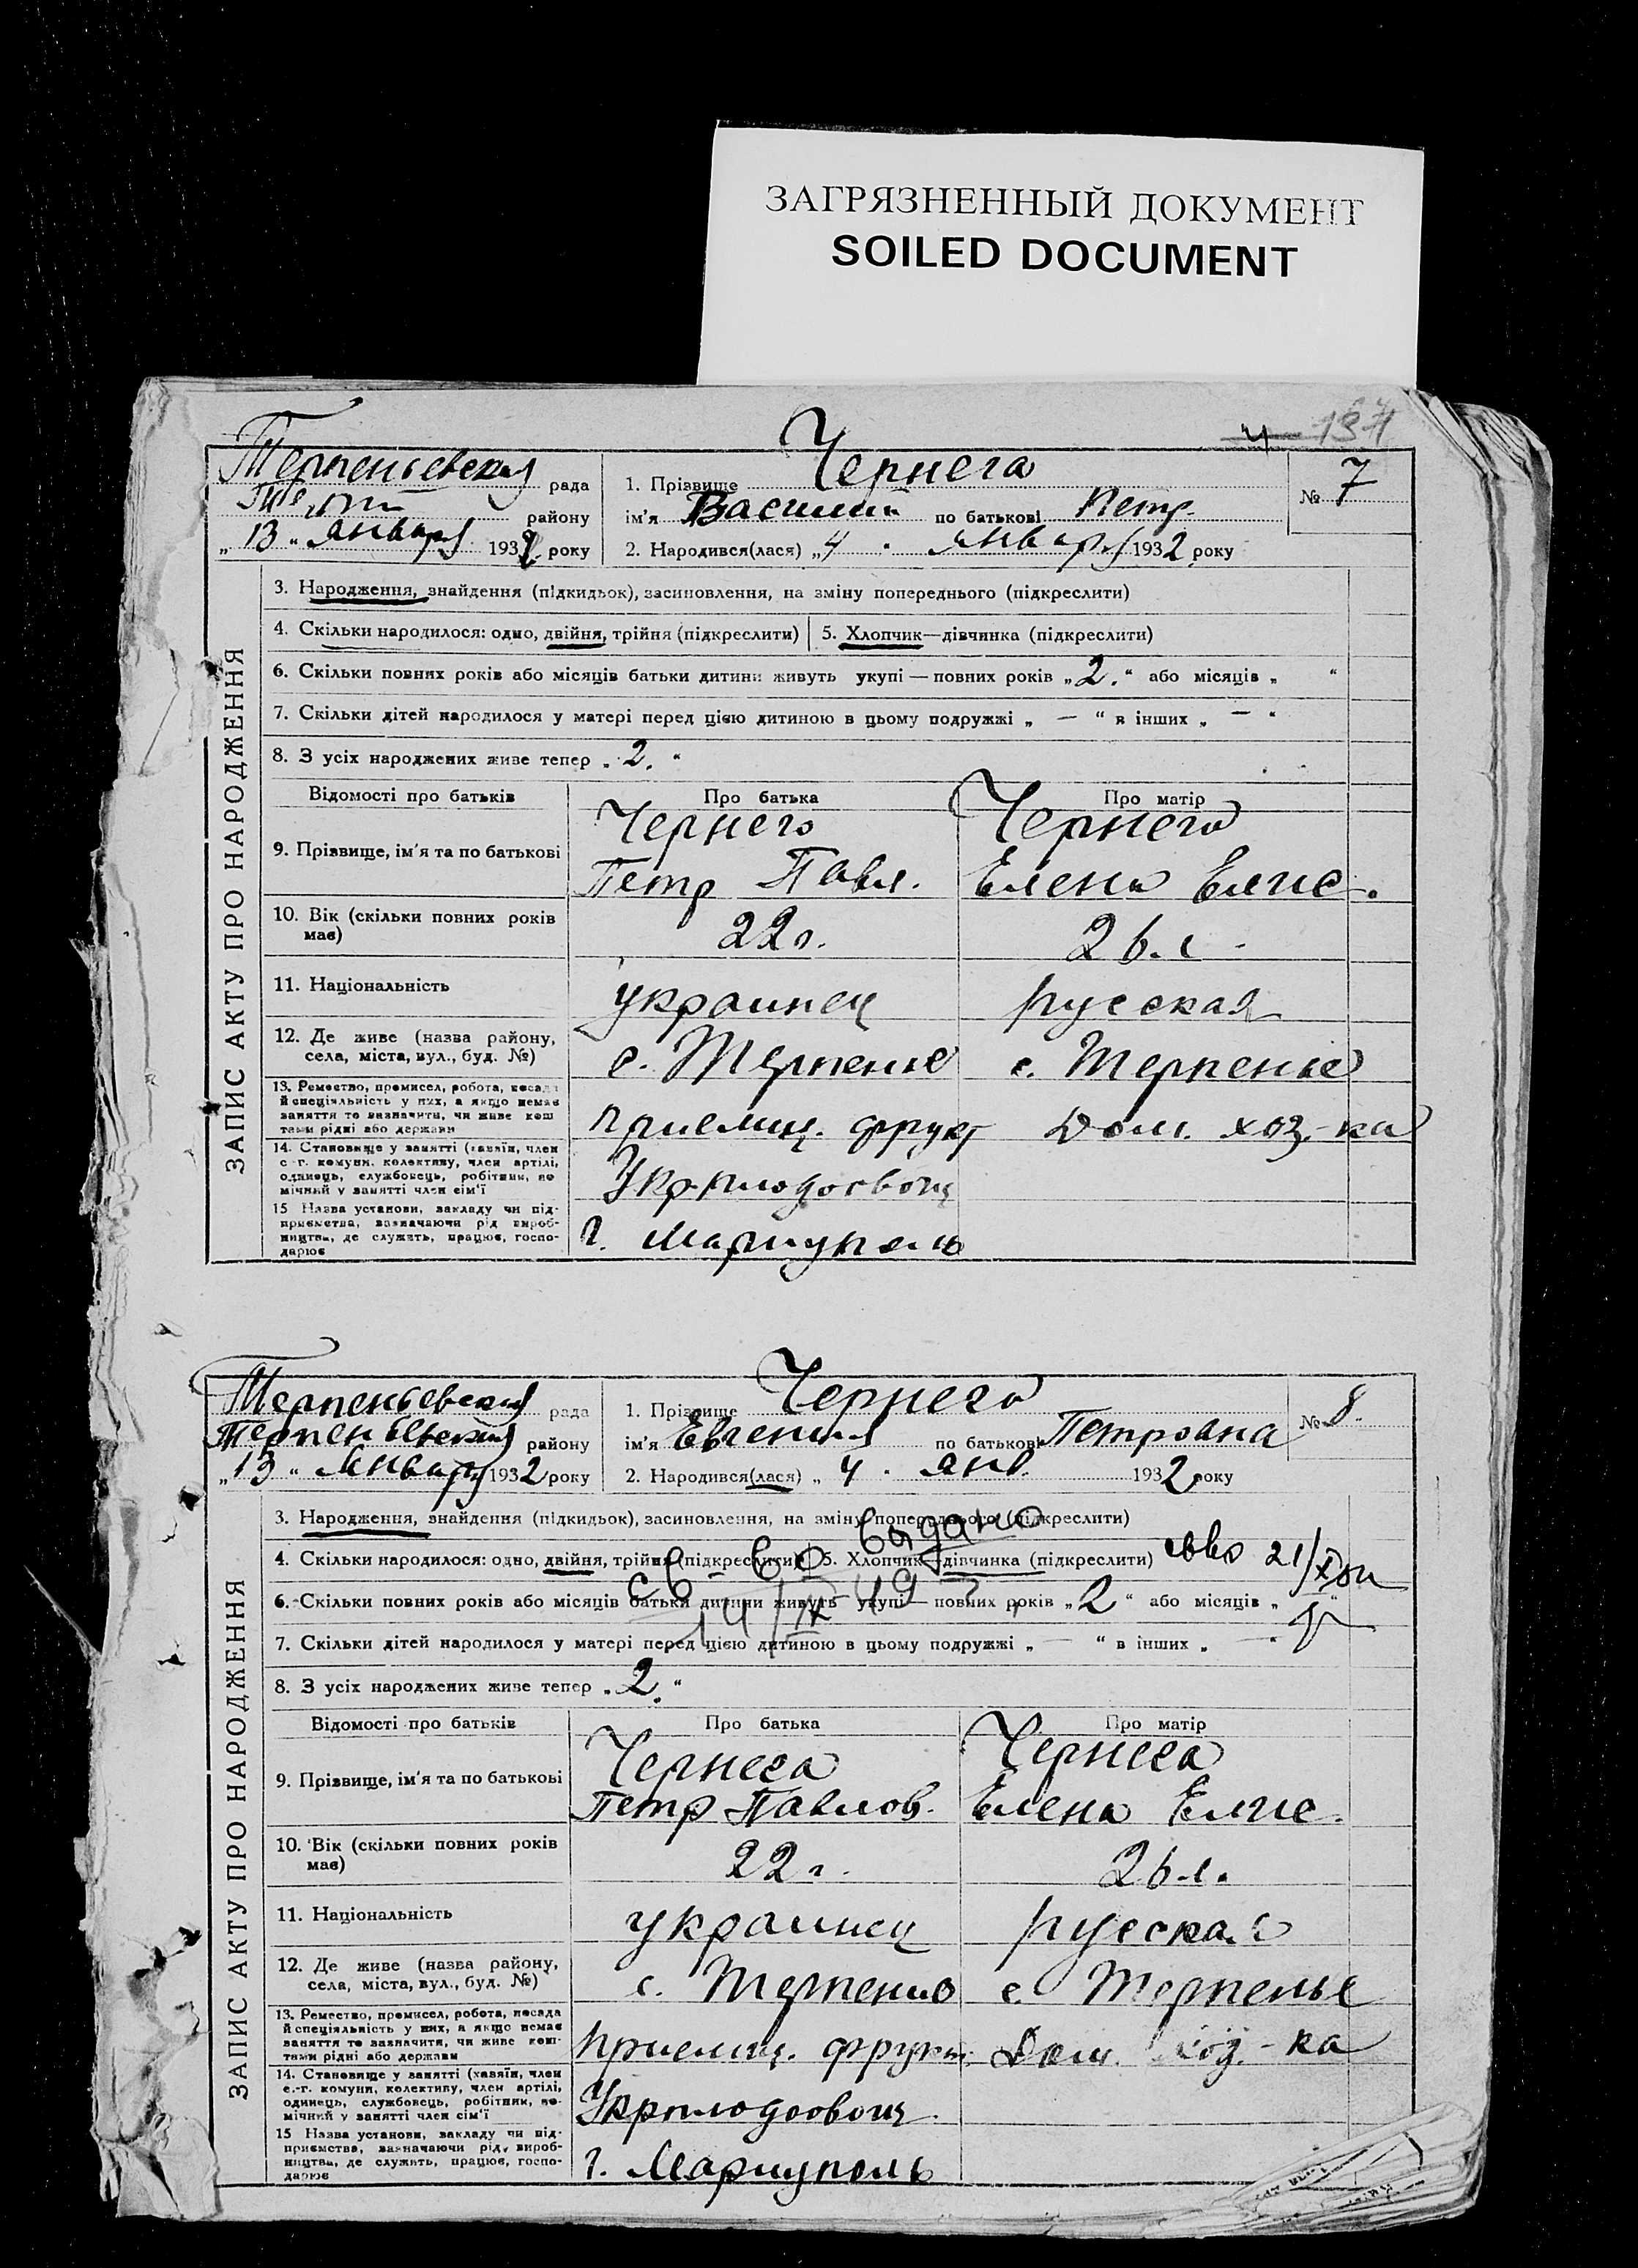 ЗАГРЯЗНЕННЫЙ ДОКУМЕНТ
SOILED DOCUMENT
4 137
Терпеньевская рада
району
„13“ января 1932 року
1. Прізвище Чернега
ім'я Василий по батькові Петр.
2. Народився(лася) „4 " января 1932 року
№ 7
ЗАПИС АКТУ ПРО НАРОДЖЕННЯ
3. Народження, знайдення (підкидьок), засиновлення, на зміну попереднього (підкреслити)
4. Скільки народилося: одно, двійня, трійня (підкреслити) 5. Хлопчик—дівчинка (підкреслити)
6. Скільки повних років або місяців батьки дитини живуть укупі — повних років „2.“ або місяців „ “
7. Скільки дітей народилося у матері перед цією дитиною в цьому подружжі „ — “ в інших „ — “
8. З усіх народжених живе тепер „2.“
Відомості про батьків Про батька Про матір
9. Прізвище, ім'я та по батькові
Чернега Чернега
Петр Павл. Елена Елис.
10. Вік (скільки повних років має) 22 г. 26. л.
11. Національність украинец русская
12. Де живе (назва району, села, міста, вул., буд. №) с. Терпенье с. Терпенье
13. Ремество, промисел, робота, посада
й спеціяльність у них, а якщо немає
заняття то зазначити, чи живе кош
тами рідні або держави
приемщ. фрукт Дом. хоз.-ка
14. Становище у занятті (хазяїн, член
с.-г. комуни, колективу, член артілі,
одинець, службовець, робітник, по
мічний у занятті член сім'ї
Укрплодоовощ
15 Назва установи, закладу чи під-
приємства, зазначаючи рід вироб-
ництва, де служить, працює, госпо-
дарює
г. Мариуполь
Терпеньевская рада
Терпеньевский району
„13“ января 1932 року
1. Прізвище Чернега
ім'я Евгения по батькові Петровна
2. Народився(лася) „ 4 " янв. 1932 року
№ 8.
ЗАПИС АКТУ ПРО НАРОДЖЕННЯ
3. Народження, знайдення (підкидьок), засиновлення, на зміну попереднього (підкреслити)
выдано
4. Скільки народилося: одно, двійня, трійня (підкреслити) 5. Хлопчик—дівчинка (підкреслити)
св-во
6. Скільки повних років або місяців батьки дитини живуть укупі — повних років „2“ або місяців „ “
14/IX 49
7. Скільки дітей народилося у матері перед цією дитиною в цьому подружжі „ — “ в інших „ — “
8. З усіх народжених живе тепер „2.“
Відомості про батьків Про батька Про матір
9. Прізвище, ім'я та по батькові
Чернега Чернега
Петр Павлов. Елена Елис.
10. Вік (скільки повних років має) 22 г. 26 л.
11. Національність украинец русская
12. Де живе (назва району, села, міста, вул., буд. №) с. Терпенье с. Терпенье
13. Ремество, промисел, робота, посада
й спеціяльність у них, а якщо немає
заняття то зазначити, чи живе кош-
тами рідні або держави
приемщ. фрукт. Дом. хоз.-ка
14. Становище у занятті (хазяїн, член
с.-г. комуни, колективу, член артілі,
одинець, службовець, робітник, по-
мічний у занятті член сім'ї
Укрплодоовощ.
15 Назва установи, закладу чи під-
приємства, зазначаючи рід вироб-
ництва, де служить, працює, госпо-
дарює
г. Мариуполь